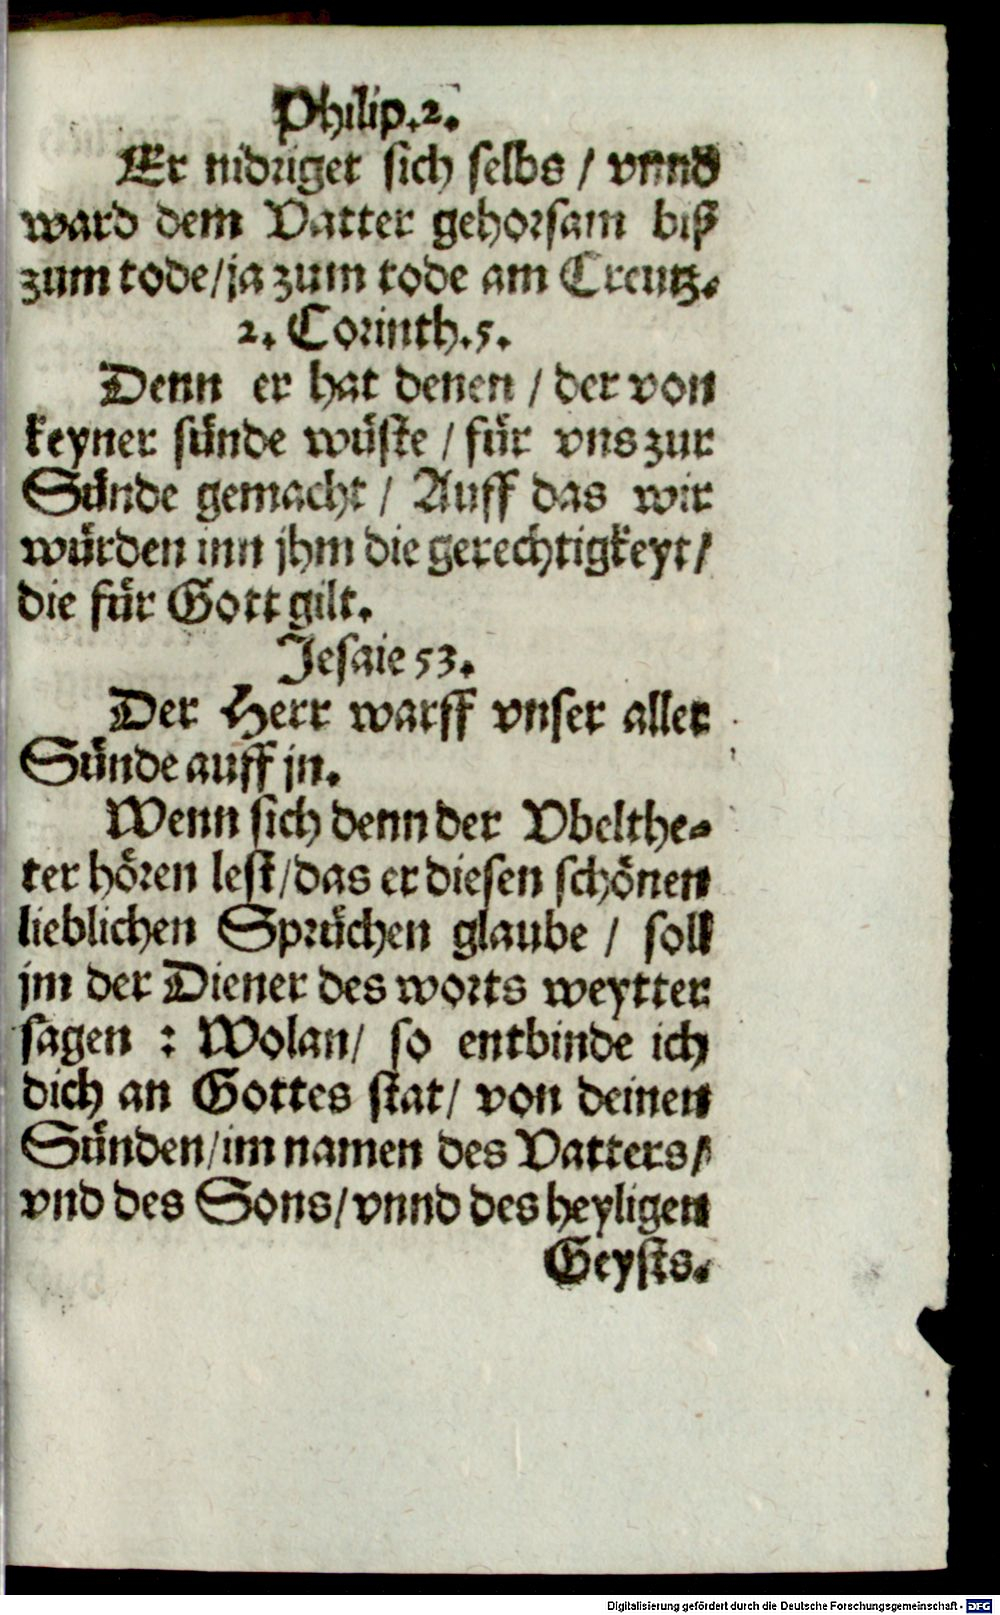 Philip.2.
Er nidriget sich selbs / vnnd
ward dem Vatter gehorsam biß
zum tode/ja zum tode am Creutz.
2. Corinth.5.
Denn er hat denen / der von
keyner sünde wüste / für vns zur
Sünde gemacht / Auff das wir
würden inn jhm die gerechtigkeyt/
die für Gott gilt.
Jesaie 53.
Der Herr warff vnser aller
Sünde auff jn.
Wenn sich denn der Vbelthe-
ter hören lest/das er diesen schönen
lieblichen Sprüchen glaube / soll
jm der Diener des worts weytter
sagen : Wolan/ so entbinde ich
dich an Gottes stat/ von deinen
Sünden/im namen des Vatters/
vnd des Sons/vnnd des heyligen
Geysts.
Digitalisierung gefördert durch die Deutsche Forschungsgemeinschaft - DFG